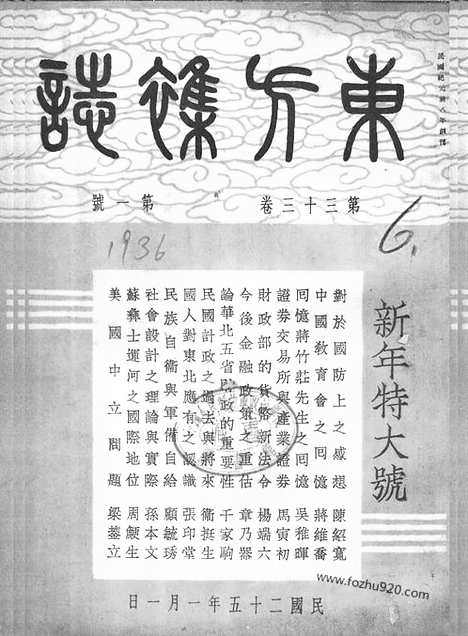 民國紀元前八年創刊
東方雜誌
第三十三卷 第一號
6.
1936
新年特大號
對於國防上之感想 陳紹寬
中國教育會之回憶 蔣維喬
回憶蔣竹莊先生之回憶 吳稚暉
證券交易所與產業證券 馬寅初
財政部的貨幣新法令 楊端六
今後金融政策之重估 章乃器
論華北五省財政的重要性 千家駒
民國計政之過去與將來 衞挺生
國人對東北應有之認識 張印堂
民族自衛與軍備自給 顧毓琇
社會設計之理論與實際 孫本文
蘇彝士運河之國際地位 周鯁生
美國中立問題 梁鋆立
民國二十五年一月一日
www.fozhu920.com